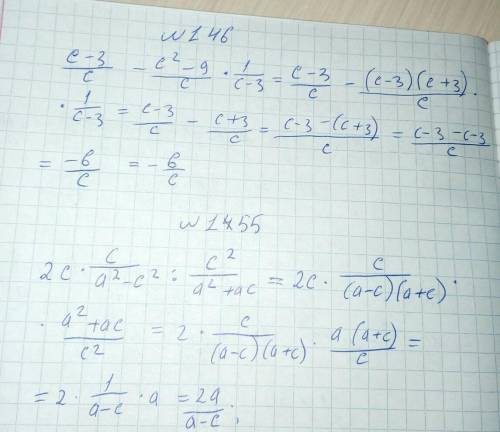 № 146
(c-3)/c - (c²-9)/c · 1/(c-3) = (c-3)/c - ((c-3)(c+3))/c ·
· 1/(c-3) = (c-3)/c - (c+3)/c = (c-3-(c+3))/c = (c-3-c-3)/c
= -6/c = -6/c
№ 1455
2c · c/(a²-c²) : c²/(a²+ac) = 2c · c/((a-c)(a+c)) ·
· (a²+ac)/c² = 2 · c/((a-c)(a+c)) · (a(a+c))/c =
= 2 · 1/(a-c) · a = 2a/(a-c);